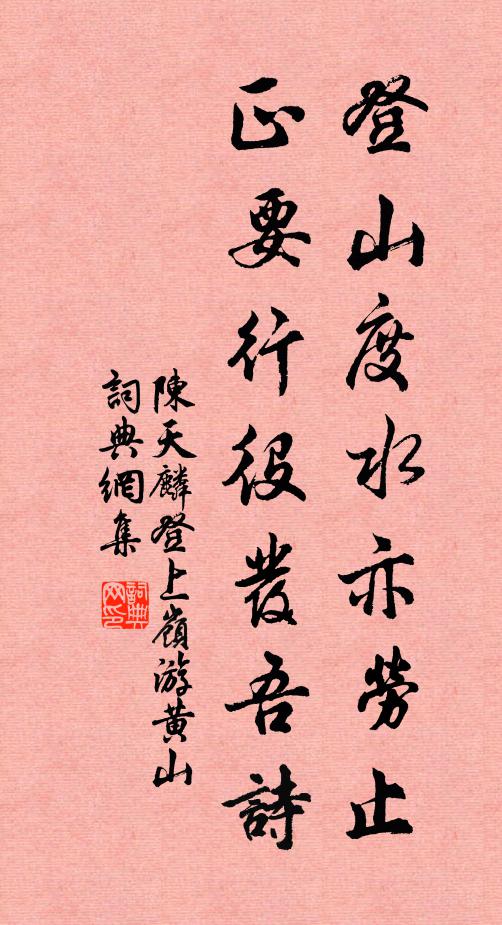 登山度水亦勞止
正要行役發吾詩
陳天麟登上嶺游黃山
詞典網集
詞典網印